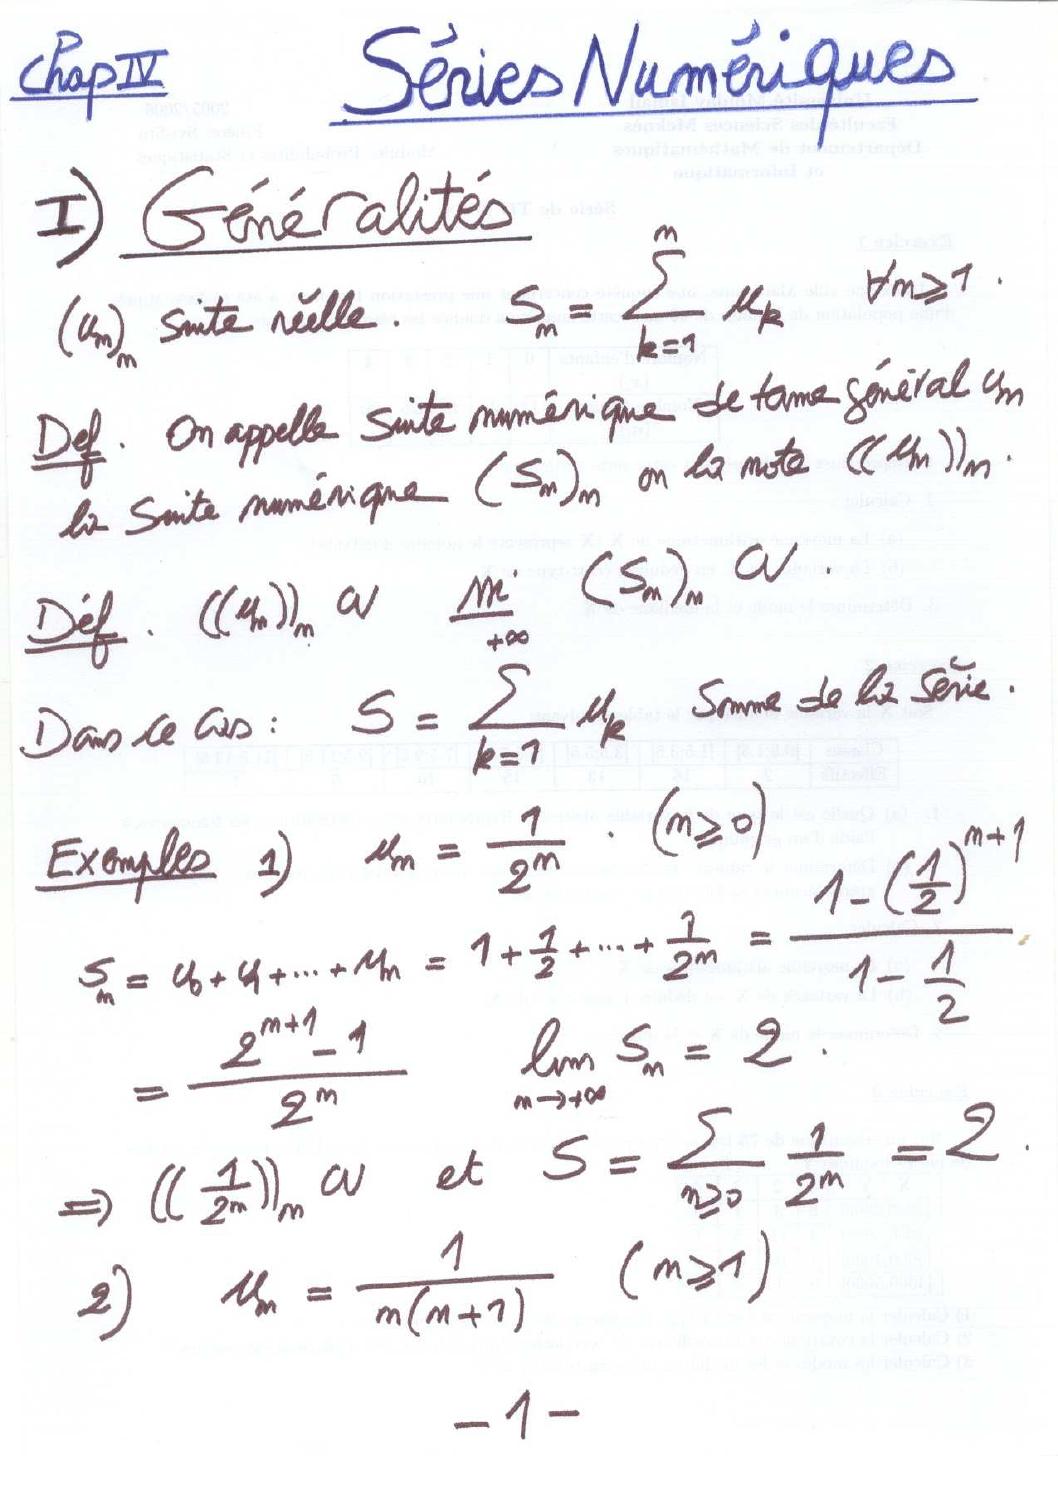 Chap IV Séries Numériques
I) Généralités
(u_n)_n Suite réelle. S_n = \sum_{k=1}^{n} u_k ∀n≥1.
Def. On appelle Suite numérique de terme général u_n
la Suite numérique (S_n)_n on la note ((u_n))_n.
Déf. ((u_n))_n CV ssi (S_n)_n CV.
Dans ce cas: S = \sum_{k=1}^{+∞} u_k Somme de la Série.
Exemples 1) u_n = \frac{1}{2^n}. (n≥0)
S_n = u_0 + u_1 + ... + u_n = 1 + \frac{1}{2} + ... + \frac{1}{2^n} = \frac{1-(\frac{1}{2})^{n+1}}{1-\frac{1}{2}}
= \frac{2^{n+1}-1}{2^n} lim_{n→+∞} S_n = 2.
⇒ ((\frac{1}{2^n}))_n CV et S = \sum_{n≥0} \frac{1}{2^n} = 2.
2) u_n = \frac{1}{n(n+1)} (n≥1)
-1-